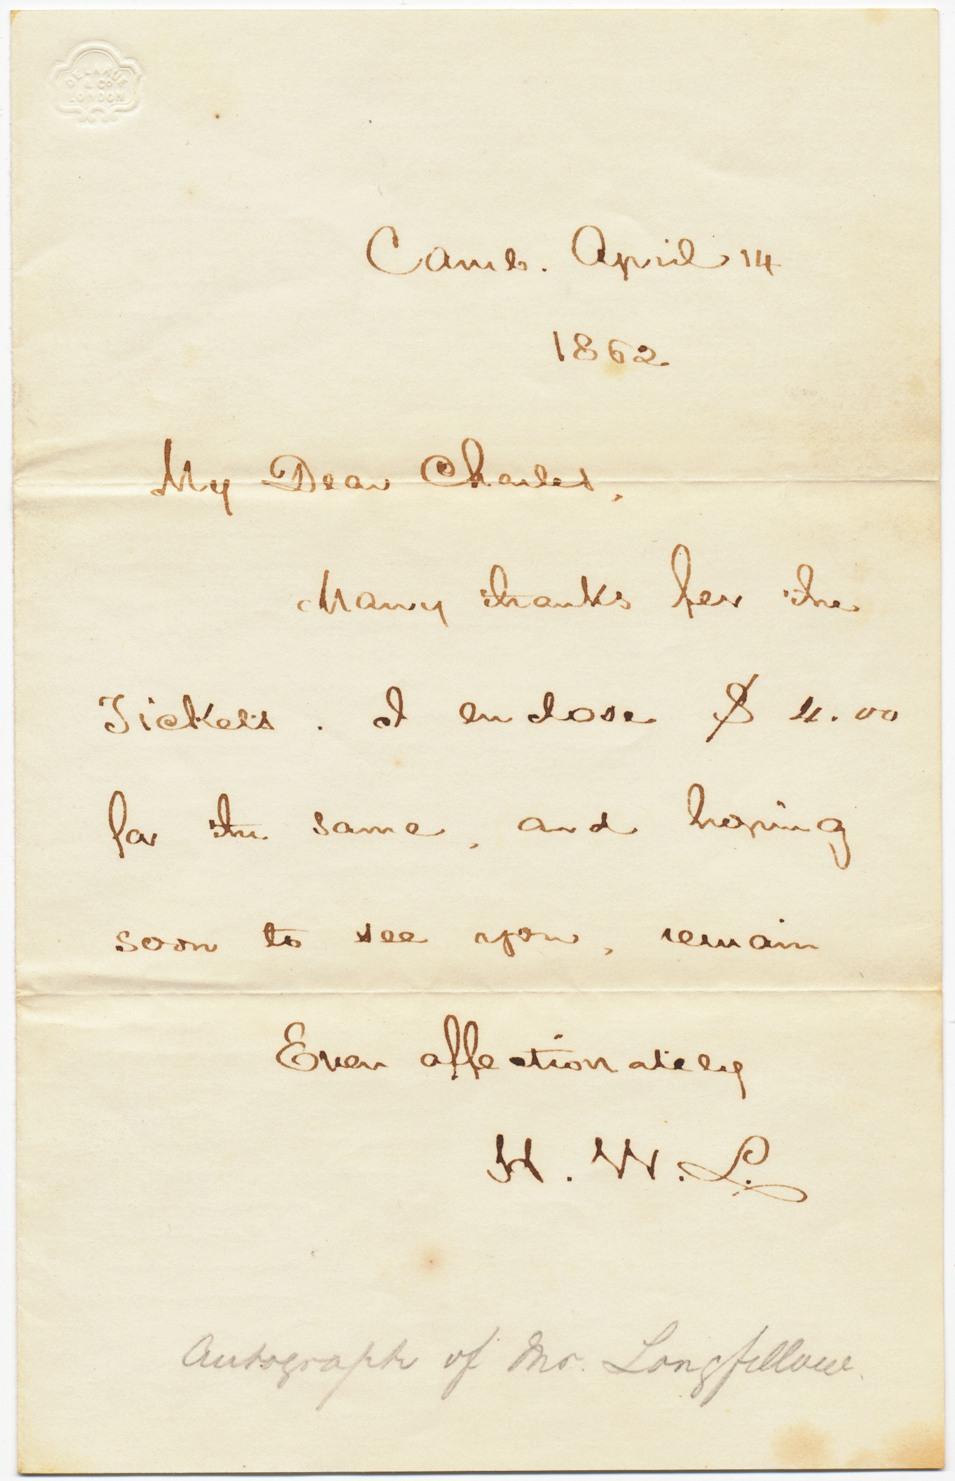 DE LA RUE
& CO
LONDON
Camb. April 14
1862
My Dear Charles,
Many thanks for the
Tickets. I enclose $4.00
for the same, and hoping
soon to see you, remain
Ever affectionately
H. W. L.
Autograph of Mr. Longfellow.